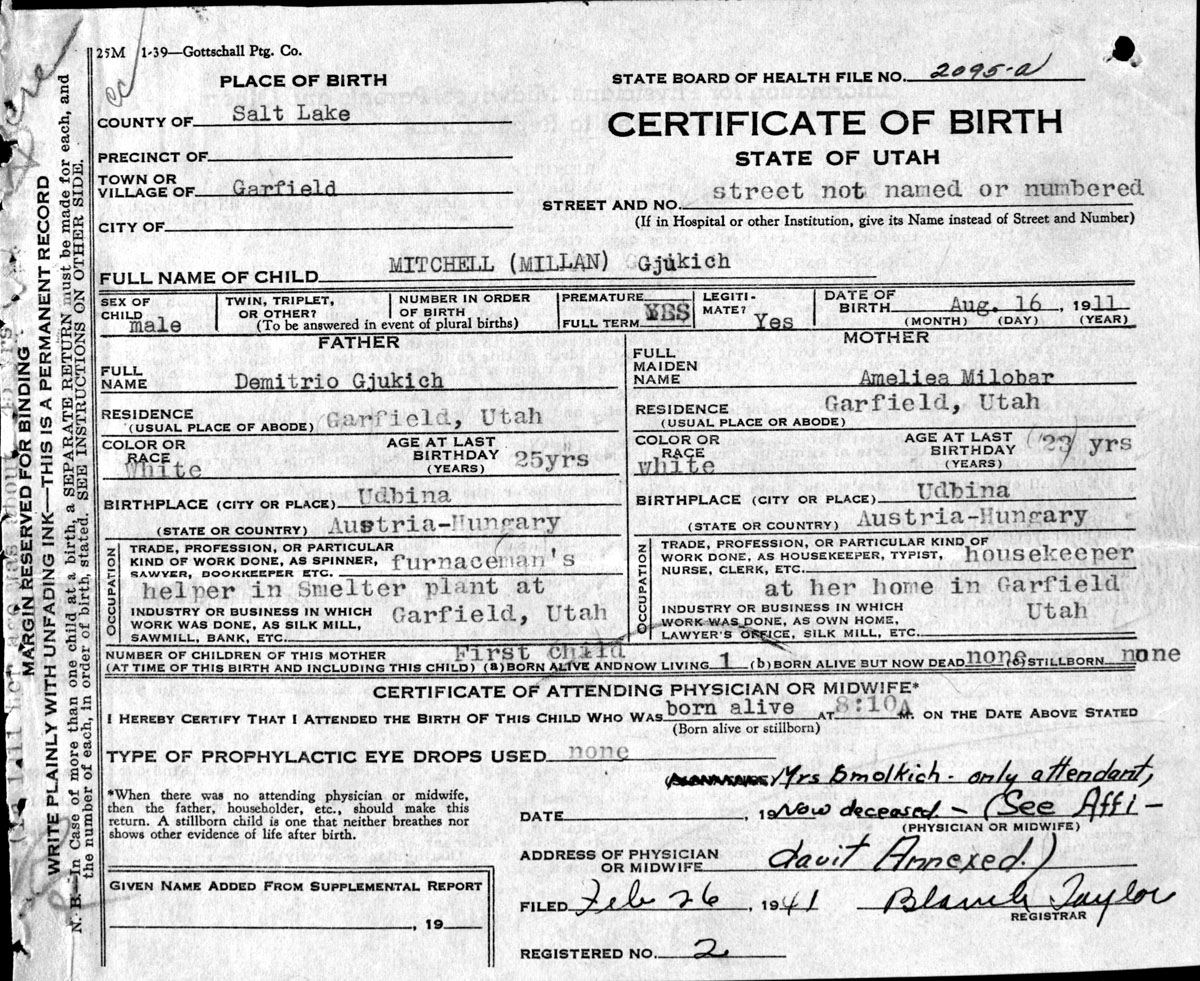 25M 1-39—Gottschall Ptg. Co.
PLACE OF BIRTH
STATE BOARD OF HEALTH FILE NO. 2095-a
COUNTY OF Salt Lake
CERTIFICATE OF BIRTH
PRECINCT OF
STATE OF UTAH
TOWN OR VILLAGE OF Garfield
STREET AND NO. street not named or numbered
(If in Hospital or other Institution, give its Name instead of Street and Number)
CITY OF
FULL NAME OF CHILD MITCHELL (MILLAN) Gjukich
SEX OF CHILD male
TWIN, TRIPLET, OR OTHER?
NUMBER IN ORDER OF BIRTH
(To be answered in event of plural births)
PREMATURE
FULL TERM YES
LEGITI-
MATE? Yes
DATE OF BIRTH Aug. 16, 1911
(MONTH) (DAY) (YEAR)
FATHER
FULL NAME Demitrio Gjukich
RESIDENCE
(USUAL PLACE OF ABODE) Garfield, Utah
COLOR OR RACE White
AGE AT LAST BIRTHDAY (YEARS) 25yrs
BIRTHPLACE (CITY OR PLACE) Udbina
(STATE OR COUNTRY) Austria-Hungary
OCCUPATION
TRADE, PROFESSION, OR PARTICULAR
KIND OF WORK DONE, AS SPINNER,
SAWYER, BOOKKEEPER ETC. furnaceman's
helper in Smelter plant at
INDUSTRY OR BUSINESS IN WHICH
WORK WAS DONE, AS SILK MILL,
SAWMILL, BANK, ETC. Garfield, Utah
MOTHER
FULL MAIDEN NAME Ameliea Milobar
RESIDENCE
(USUAL PLACE OR ABODE) Garfield, Utah
COLOR OR RACE White
AGE AT LAST BIRTHDAY (YEARS) (23) yrs
BIRTHPLACE (CITY OR PLACE) Udbina
(STATE OR COUNTRY) Austria-Hungary
OCCUPATION
TRADE, PROFESSION, OR PARTICULAR KIND OF
WORK DONE, AS HOUSEKEEPER, TYPIST,
NURSE, CLERK, ETC. housekeeper
at her home in Garfield
INDUSTRY OR BUSINESS IN WHICH
WORK WAS DONE, AS OWN HOME,
LAWYER'S OFFICE, SILK MILL, ETC. Utah
NUMBER OF CHILDREN OF THIS MOTHER First child
(AT TIME OF THIS BIRTH AND INCLUDING THIS CHILD) (a) BORN ALIVE AND NOW LIVING 1 (b) BORN ALIVE BUT NOW DEAD none (c) STILLBORN none
CERTIFICATE OF ATTENDING PHYSICIAN OR MIDWIFE*
I HEREBY CERTIFY THAT I ATTENDED THE BIRTH OF THIS CHILD WHO WAS born alive AT 8:10A M. ON THE DATE ABOVE STATED
(Born alive or stillborn)
TYPE OF PROPHYLACTIC EYE DROPS USED none
*When there was no attending physician or midwife,
then the father, householder, etc., should make this
return. A stillborn child is one that neither breathes nor
shows other evidence of life after birth.
Mrs Smolkich - only attendant,
DATE , 19 Now deceased. - (See Affi-
(PHYSICIAN OR MIDWIFE)
ADDRESS OF PHYSICIAN
OR MIDWIFE davit Annexed.)
GIVEN NAME ADDED FROM SUPPLEMENTAL REPORT
, 19
FILED Feb 26, 1941 Blanch Taylor
REGISTRAR
REGISTERED NO. 2
MARGIN RESERVED FOR BINDING
WRITE PLAINLY WITH UNFADING INK—THIS IS A PERMANENT RECORD
N. B.—In Case of more than one child at a birth, a SEPARATE RETURN must be made for each, and
the number of each, in order of birth, stated. SEE INSTRUCTIONS ON OTHER SIDE.